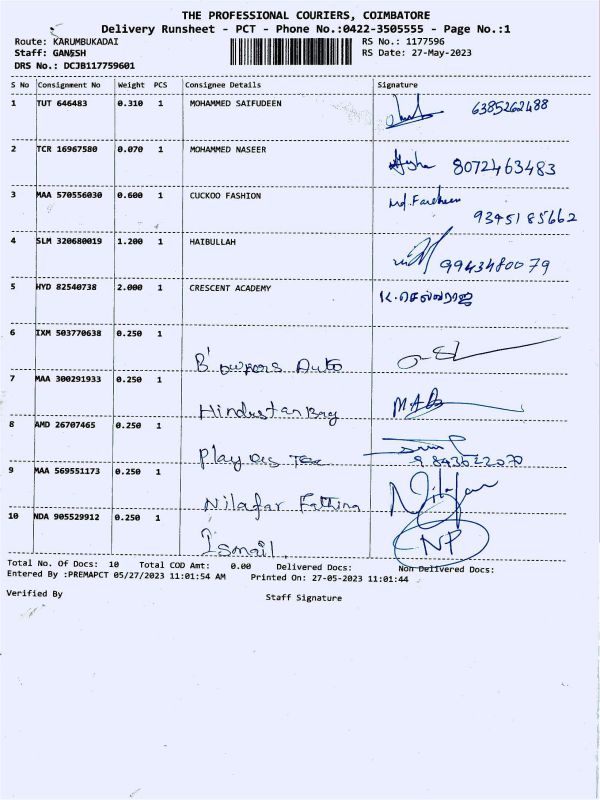 THE PROFESSIONAL COURIERS, COIMBATORE
Delivery Runsheet - PCT - Phone No.:0422-3505555 - Page No.:1
Route: KARUMBUKADAI RS No.: 1177596
Staff: GANESH RS Date: 27-May-2023
DRS No.: DCJB117759601
S No Consignment No Weight PCS Consignee Details Signature
1 TUT 646483 0.310 1 MOHAMMED SAIFUDEEN 6385262488
2 TCR 16967580 0.070 1 MOHAMMED NASEER 8072463483
3 MAA 570556030 0.600 1 CUCKOO FASHION Md.Fareheen
9345185662
4 SLM 320680019 1.200 1 HAIBULLAH 9943480079
5 HYD 82540738 2.000 1 CRESCENT ACADEMY K.செல்வராஜ
6 IXM 503770638 0.250 1
Auto
7 MAA 300291933 0.250 1
Hindustan Bag
8 AMD 26707465 0.250 1
9843622070
9 MAA 569551173 0.250 1
Nilafar Fathima Nilafar
10 NDA 905529912 0.250 1
Ismail. NP
Total No. Of Docs: 10 Total COD Amt: 0.00 Delivered Docs: Non Delivered Docs:
Entered By :PREMAPCT 05/27/2023 11:01:54 AM Printed On: 27-05-2023 11:01:44
Verified By Staff Signature